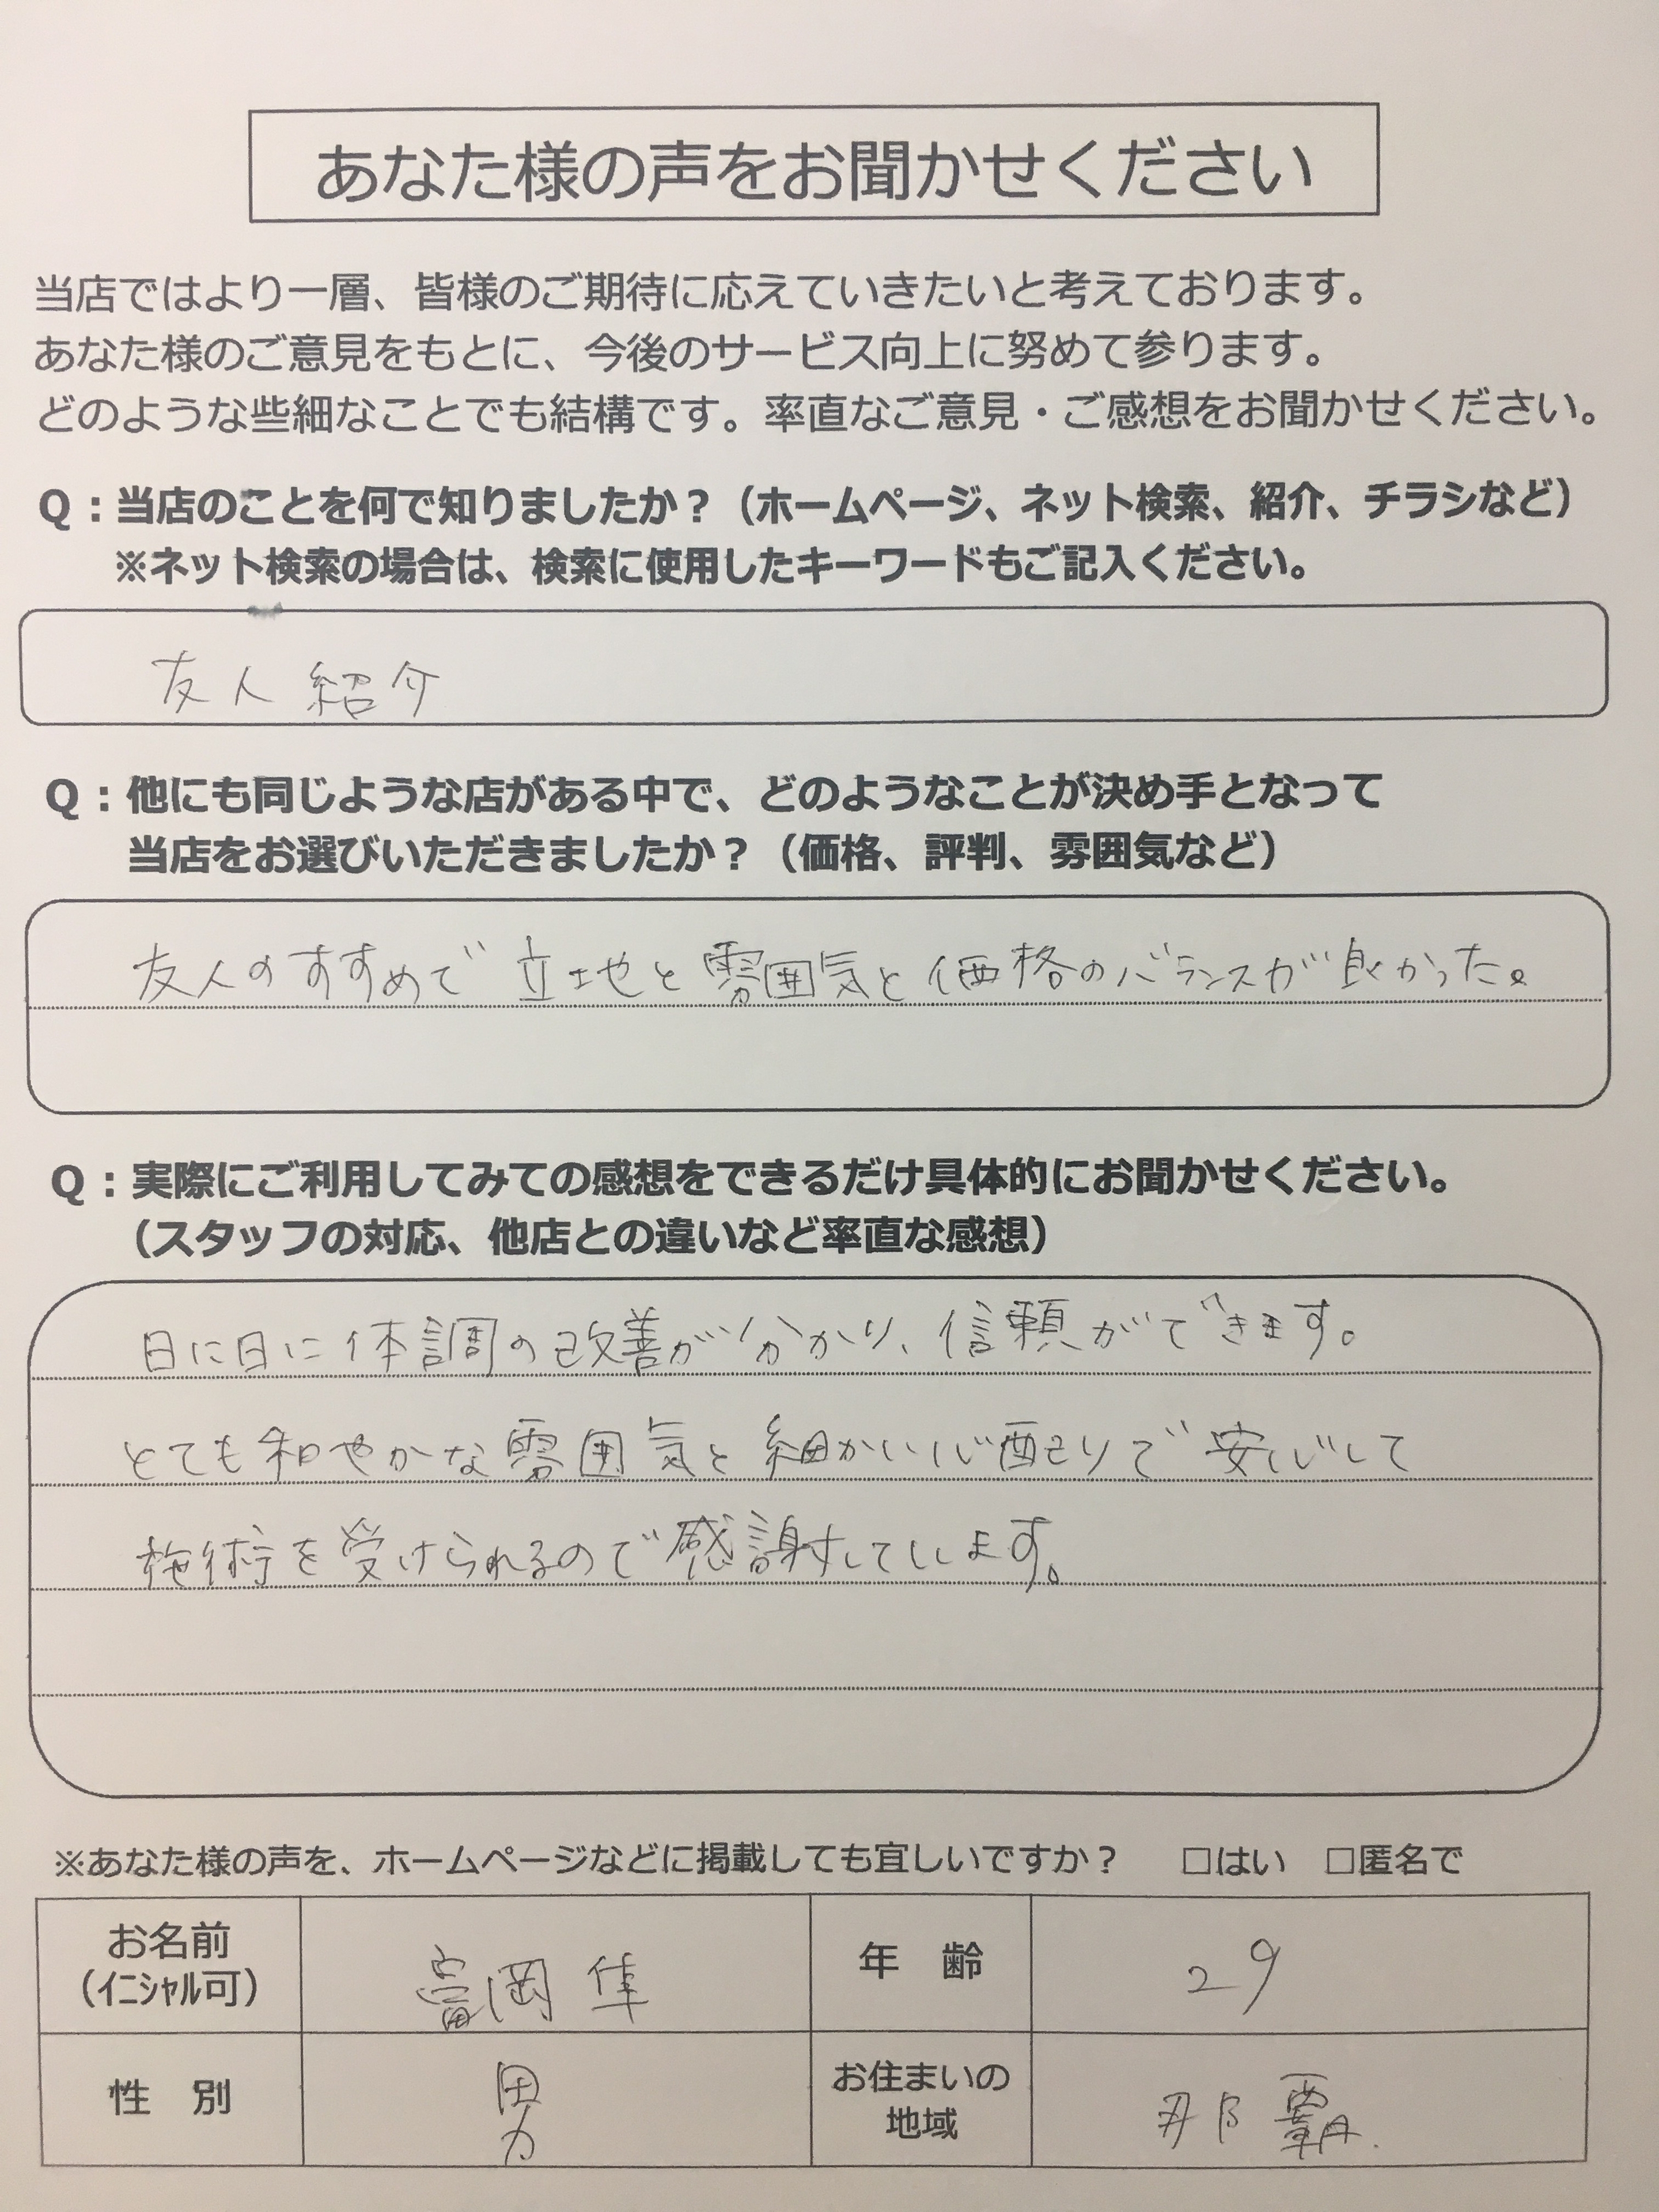 あなた様の声をお聞かせください
当店ではより一層、皆様のご期待に応えていきたいと考えております。
あなた様のご意見をもとに、今後のサービス向上に努めて参ります。
どのような些細なことでも結構です。率直なご意見・ご感想をお聞かせください。
Q：当店のことを何で知りましたか？（ホームページ、ネット検索、紹介、チラシなど）
※ネット検索の場合は、検索に使用したキーワードもご記入ください。
友人紹介
Q：他にも同じような店がある中で、どのようなことが決め手となって
当店をお選びいただきましたか？（価格、評判、雰囲気など）
友人のすすめで立地と雰囲気と価格のバランスが良かった。
Q：実際にご利用してみての感想をできるだけ具体的にお聞かせください。
（スタッフの対応、他店との違いなど率直な感想）
日に日に体調の改善が分かり、信頼ができます。
とても和やかな雰囲気と細かい心配りで安心して
施術を受けられるので感謝しています。
※あなた様の声を、ホームページなどに掲載しても宜しいですか？ □はい □匿名で
お名前 富岡 隼 年 齢 29
（イニシャル可）
性 別 男 お住まいの 那覇
地域